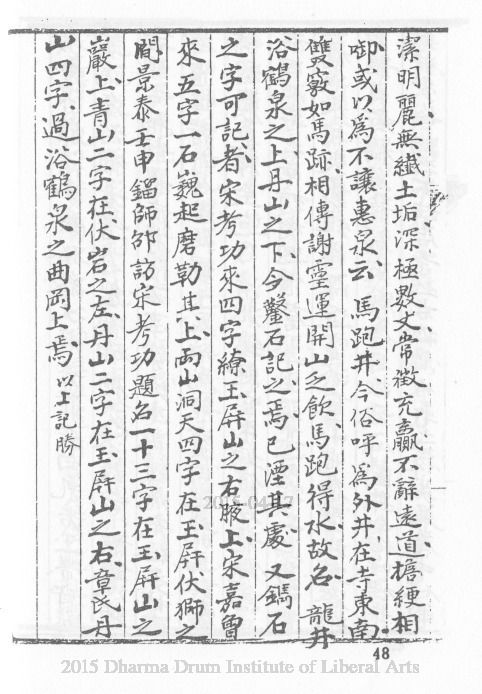 潔明麗無纖土垢深極數丈常徵充羸不辭遠道擔綆相
啣或以為不讓惠泉云 馬跑井今俗呼為外井在寺東南
雙竅如馬跡相傳謝靈運開山乏飲馬跑得水故名 龍井
浴鶴泉之上丹山之下今鑿石記之焉已湮其處 又鐫石
之字可記者宋考功來四字繚玉屏山之右腋上宋嘉曾
來五字一石巍起磨勒其上兩山洞天四字在玉屏伏獅之
間景泰壬申鎦師邵訪宋考功題名一十三字在玉屏山之
巖上青山二字在伏岩之左丹山二字在玉屏山之右章氏丹
山四字過浴鶴泉之曲岡上焉 以上記勝
48
2015 Dharma Drum Institute of Liberal Arts